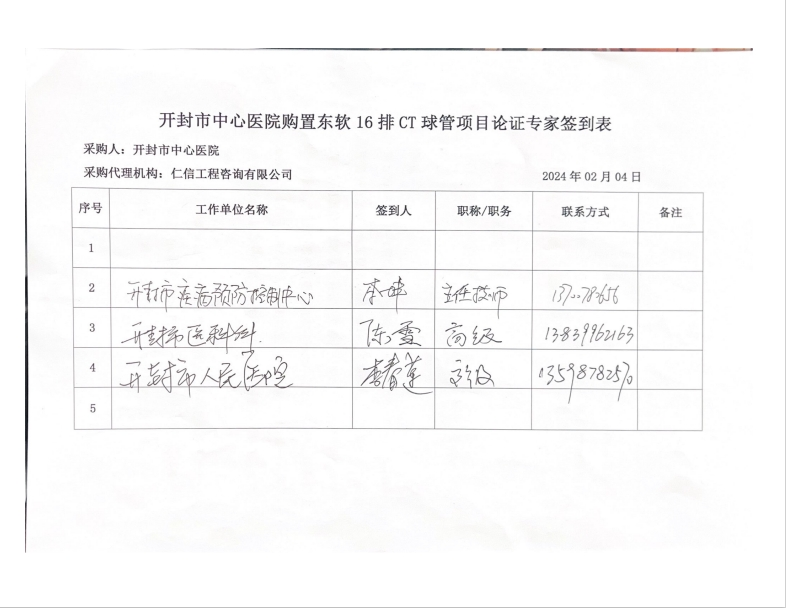 开封市中心医院购置东软 16 排 CT 球管项目论证专家签到表
采购人：开封市中心医院
采购代理机构：仁信工程咨询有限公司 2024 年 02 月 04 日
序号 工作单位名称 签到人 职称/职务 联系方式 备注
1
2 开封市疾病预防控制中心 李 主任技师
3 开封市医科 陈雪 高级 13839962163
4 开封市人民医院 春莲 高级
5